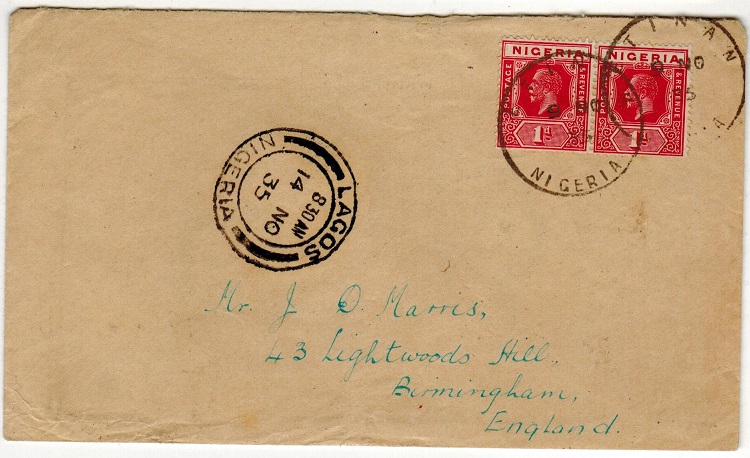 NIGERIA NIGERIA
POSTAGE & REVENUE POSTAGE & REVENUE
1d 1d
TINAN
NO
NIGERIA
LAGOS
8 30 AM
14 NO
35
NIGERIA
Mr. J. D. Marris,
43 Lightwoods Hill,
Birmingham,
England.